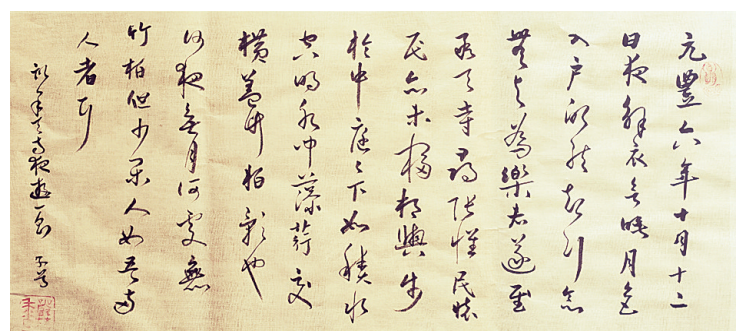 元豐六年十月十二
日夜解衣欲睡月色
入戶欣然起行念
無與為樂者遂至
承天寺尋張懷民懷
民亦未寢相與步
於中庭々下如積水
空明水中藻荇交
橫蓋竹柏影也
何夜無月何處無
竹柏但少閑人如吾兩
人者耳
記承天寺夜遊